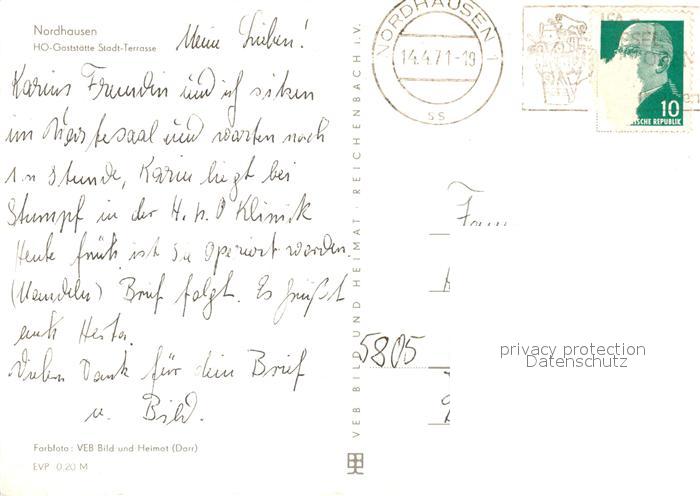 Nordhausen
HO-Gaststätte Stadt-Terrasse
Meine Lieben!
Karins Freundin und ich sitzen
im Wartesaal und warten noch
1 n Stunde, Karin liegt bei
Stumpf in der H. n. O Klinick
Heute früh ist sie operiert worden.
(Mandeln) Brief folgt. Es grüßt
euch Herta.
Vielen Dank für dein Brief
u. Bild.
Farbfoto: VEB Bild und Heimat (Darr)
EVP 0,20 M
VEB BILD UND HEIMAT · REICHENBACH i. V.
NORDHAUSEN 1
14.4.71-19
ss
10
SCHE REPUBLIK
5805
privacy protection
Datenschutz